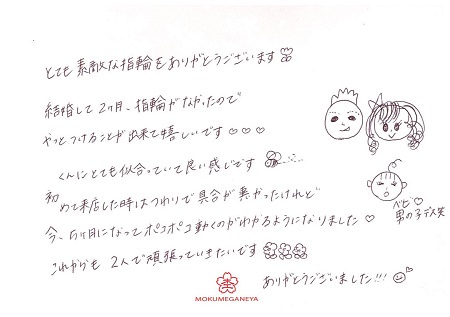 とても素敵な指輪をありがとうございます
結婚して2ヶ月、指輪がなかったので
やっとつけることが出来て嬉しいです♡♡♡
くんにとても似合っていて良い感じです
初めて来店した時はつわりで具合が悪かったけれど
今、5ヶ月になってポコポコ動くのがわかるようになりました♡
これからも2人で頑張っていきたいです
ありがとうございました!!!
ベビ♡
男の子デス
MOKUMEGANEYA